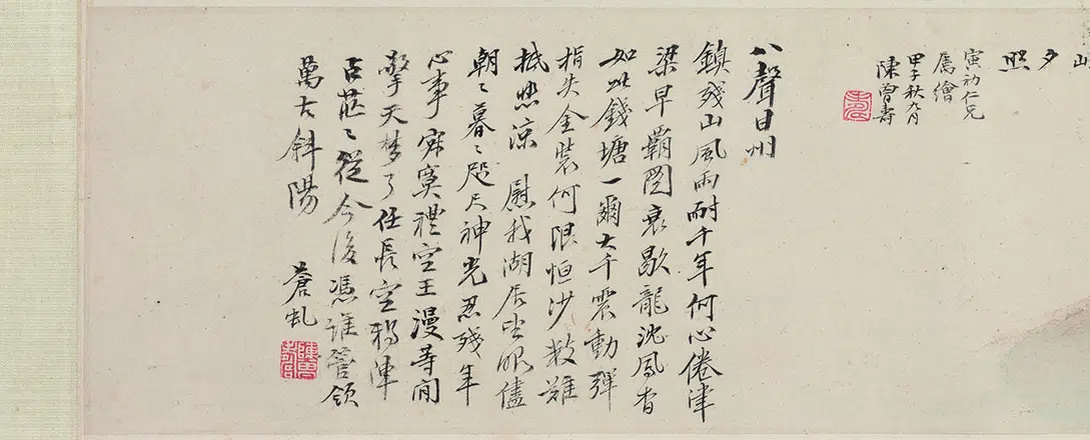 夕照
寅初仁兄
屬繪
甲子秋九月
陳曾壽
八聲甘州
鎮殘山風雨耐千年何心倦津
梁早霸圖衰歇龍沈鳳杳
如此錢塘一爾大千震動彈
指失金裝何限恒沙數難
抵悲涼 慰我湖居望眼儘
朝〻暮〻咫尺神光忍殘年
心事寂寞禮空王漫等閒
擎天夢了任長空鴉陣
占茫〻從今後憑誰管領
萬古斜陽 蒼虬